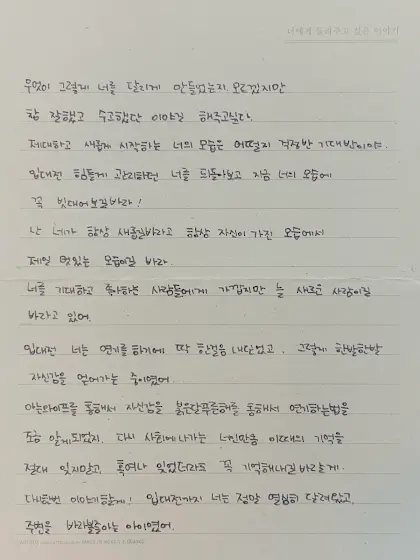 너에게 들려주고 싶은 이야기
무엇이 그렇게 너를 달리게 만들었는지 모르겠지만
참 잘했고 수고했단 이야길 해주고싶다.
제대하고 새롭게 시작하는 너의 모습은 어떨지 걱정반 기대반이야.
입대전 힘들게 고민하던 너를 뒤돌아보고 지금 너의 모습에
꼭 빗대어보길바라!
난 네가 항상 새롭길바라고 항상 자신이 가진 모습에서
제일 멋있는 모습이길 바라.
너를 기대하고 좋아하는 사람들에게 가깝지만 늘 새로운 사람이길
바라고 있어.
입대전 너는 연기를 하기에 딱 한걸음 내딛었고, 그렇게 한발한발
자신감을 얻어가는 중이였어.
아는와이프를 통해서 자신감을 붉은달푸른해를 통해서 연기하는법을
조금 알게되었지. 다시 사회에나가는 너인만큼 이때의 기억을
절대 잊지말고, 혹여나 잊었더라도 꼭 기억해내길 바랄게.
다시한번 이야기할게! 입대전까지 너는 정말 열심히 달려왔고,
주변을 바라볼줄아는 아이였어.